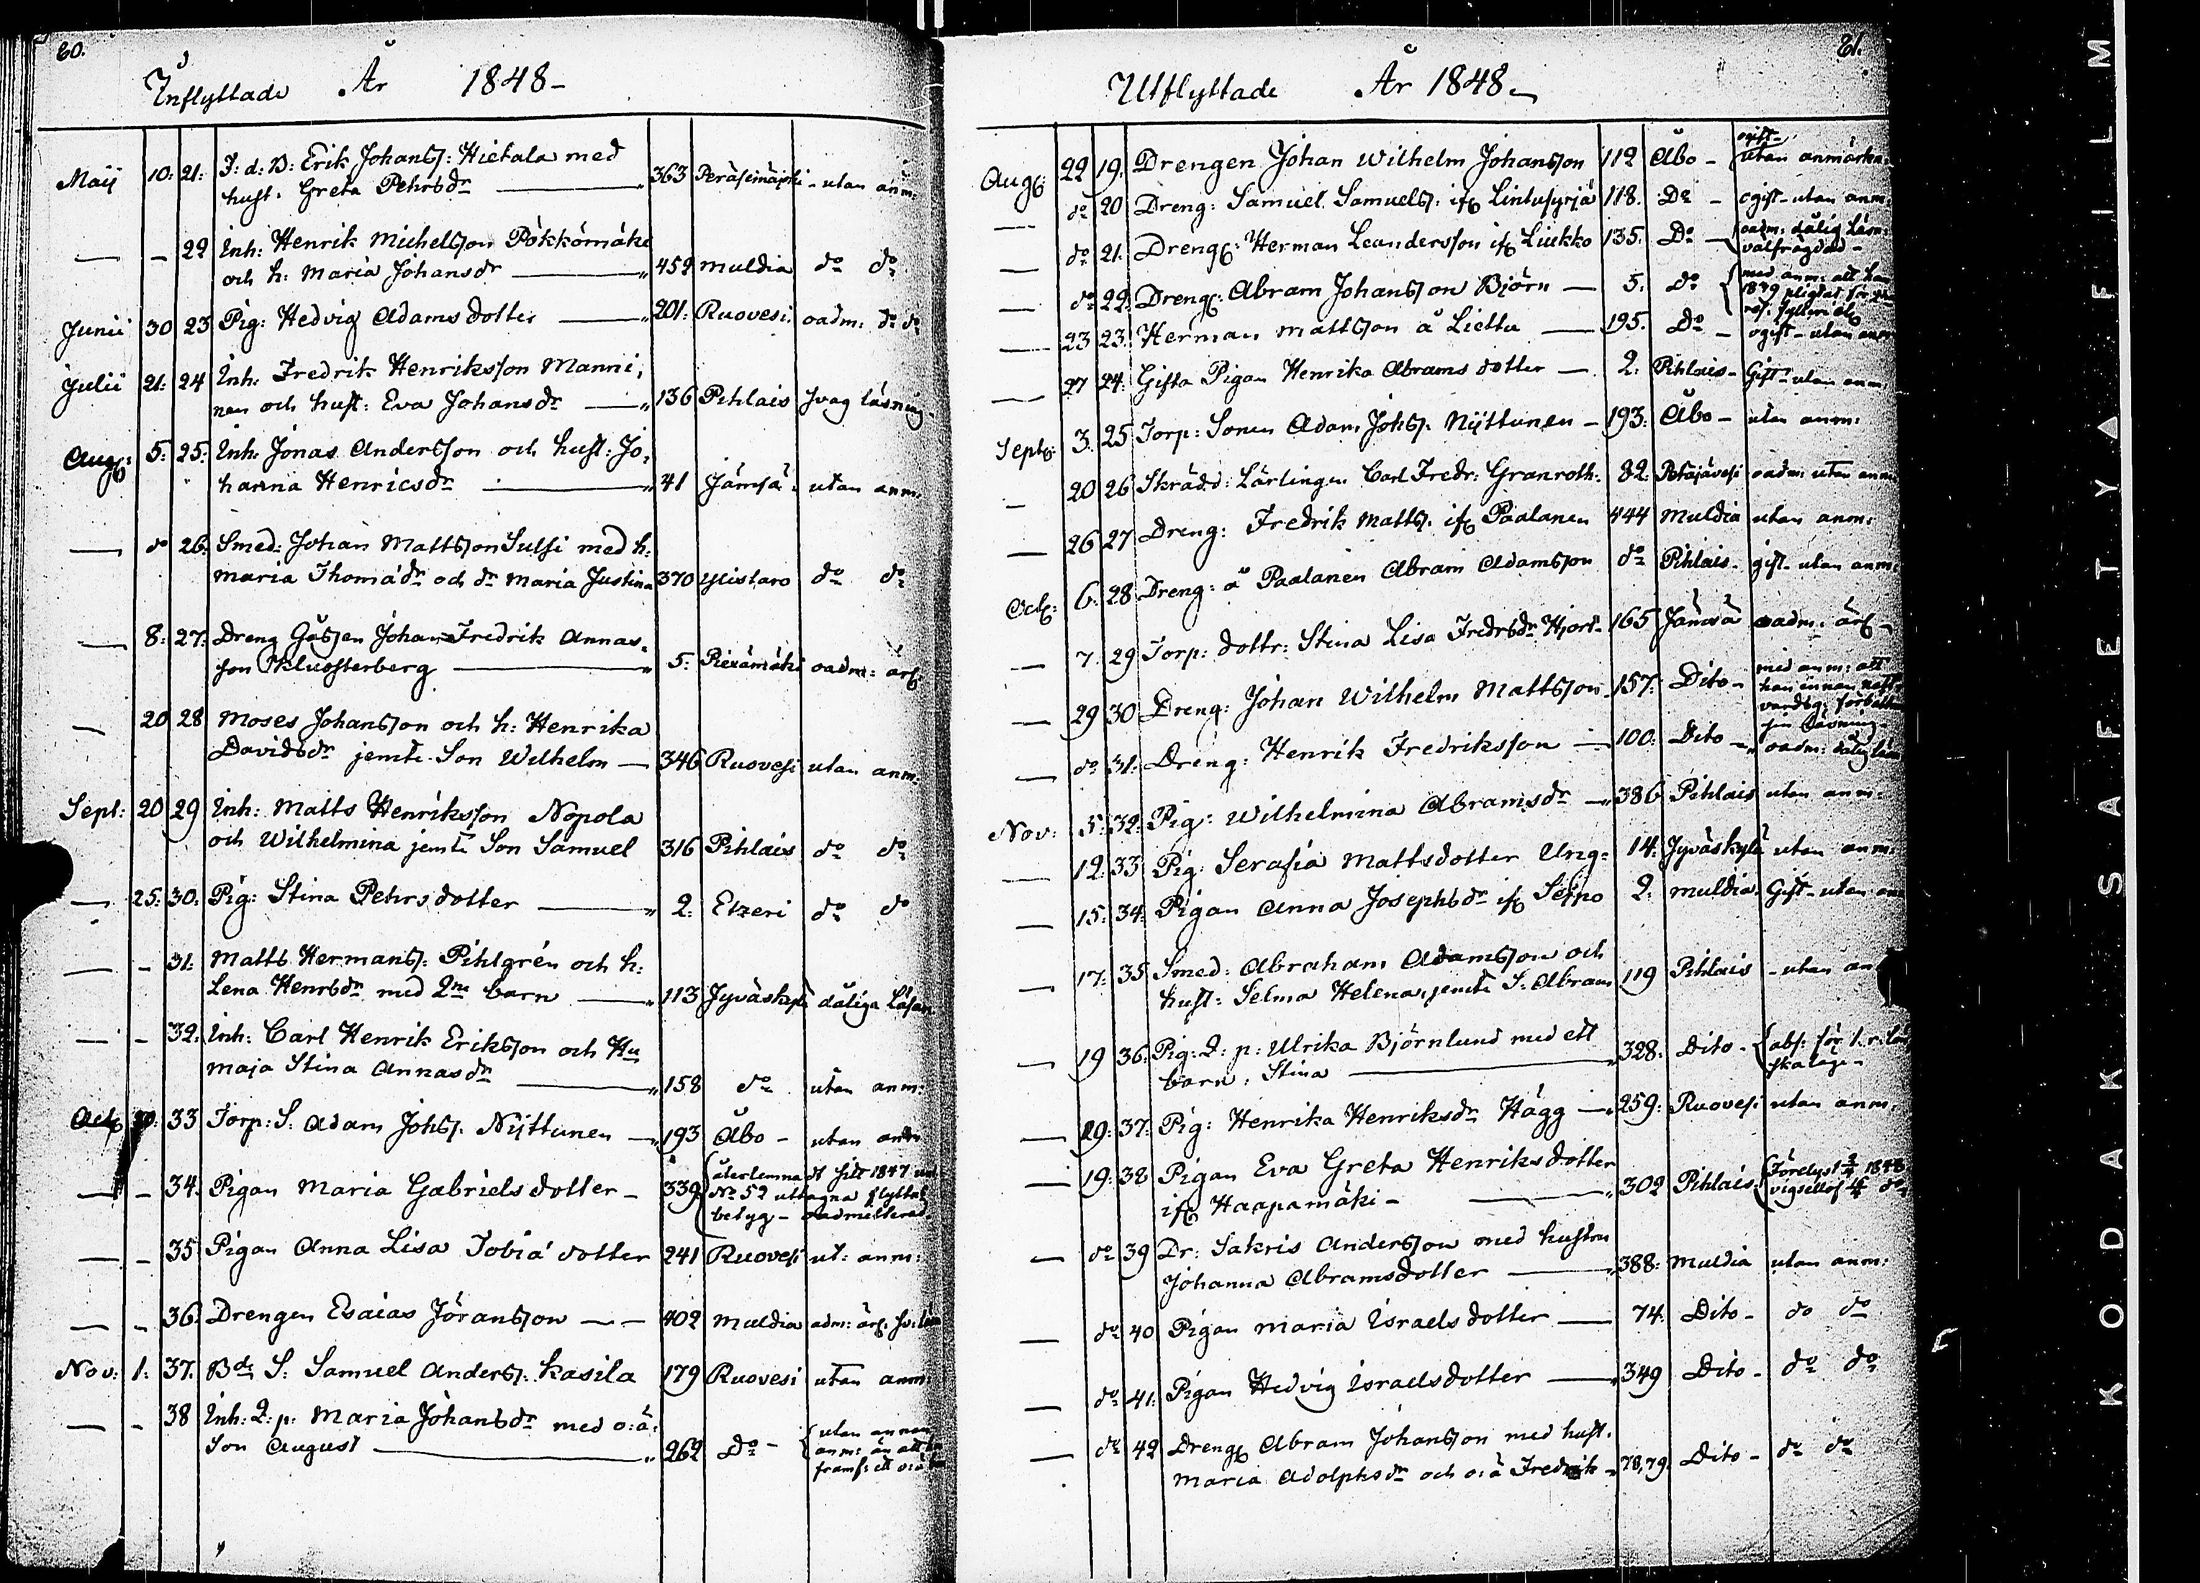 60.
Inflyttade År 1848-
Maij 10: 21: F: d: B: Erik Johanss: Hietala med
hust. Greta Pehrsdr 363 Peräseinäjoki - utan anm:
— - 22 Inh: Henrik Michelsson Pökkömäki
och h: Maria Johansdr 459 Muldia do do
Junii 30 23 Pig: Hedvig Adams dotter 201: Ruovesi. oadm: do do
Julii 21: 24 Inh. Fredrik Henriksson Manni,
nen och hust: Eva Johansdr 136 Pihlais svag läsning.
Aug: 5: 25: Inh. Jonas Andersson och hust: Jo,
hanna Henricsdr 41 Jämsä. utan anm.
— do 26. Smed: Johan Mattsson Sulsi med h:
Maria Thomædr och dr Maria Justina 370 Ylistaro do do
— 8: 27: Dreng Gåssen Johan Fredrik Annas.
son Kluosterberg 5: oadm: ärf.
— 20 28 Moses Johansson och h: Henrika
Davidsdr jemte Son Wilhelm — 346 Ruovesi utan anm.
Sept: 20 29 Inh: Matts Henriksson Nopola
och Wilhelmina jemte Son Samuel 316 Pihlais do do
— 25: 30: Pig: Stina Pehrs dotter 2: Etzeri do do
— - 31: Matts Hermanss: Pihlgrén och h:
Lena Henrsdr med 2ne barn 113 Jyväskylä dåliga Läsare
— - 32. Inh: Carl Henrik Eriksson och Hu
Maja Stina Annasdr 158 do utan anm:
Oct 33 Torp: S: Adam Johss. Nyttunen 193 Åbo - utan anm
— - 34. Pigan Maria Gabriels dotter - 339 återlemnadt sitt 1847
No 52 uttagna flyttnings
betyg - oadmitterad.
— - 35 Pigan Anna Lisa Tobiæ dotter 241 Ruovesi ut: anm:
— - 36. Drengen Esaias Jöransson 402 Muldia adm: ärf: sv: läs
Nov: 1: 37. Bde S: Samuel Anderss. Kasila 179 Ruovesi utan anm:
— - 38 Inh: Q: p: Maria Johansdr med o: ä:
Son August 262 Do - utan annan
anm: än att hon
framf: ett o: ä
61.
Utflyttade År 1848
Aug: 22 19. Drengen Johan Wilhelm Johansson 112 Åbo - ogift-
utan anmärkn
— do 20 Dreng: Samuel Samuelss: if Lintusyrjä 118. Do - ogift - utan anm.
— do 21. Dreng: Herman Leandersson if Liukko 135. Do - oadm: dålig Läsn
välfrägdad -
— do 22: Dreng: Abram Johansson Björn — 5. do med anm: att han
1849 pligtat för
res. fylleri
— 23 23. Herman Mattsson å Liettu — 195. Do - ogift - utan anm
— 27 24: Gifta Pigan Henrika Abrams dotter — 2: Pihlais - Gift - utan anm
Sept: 3. 25 Torp: Sonen Adam Johss. Nyttunen - 193: Åbo - utan anm:
- 20 26 Skrädd: Lärlingen Carl Fredr: Granroth. 82: Petäjävesi oadm: utan anm
— 26 27 Dreng: Fredrik Matts. if Paalanen 444 Muldia utan anm:
Oct: 6: 28 Dreng: å Paalanen Abram Adamsson do Pihlais. gift utan anm.
— 7. 29 Torp: dottr: Stina Lisa Fredrsdr Hjort 165 Jämsä oadm: ärf -
— 29 30 Dreng: Johan Wilhelm Mattsson 157: Dito - med anm: att
han innan natt
vardsg: förbättra
sin läsning -
— do 31: Dreng: Henrik Fredriksson — 100: Dito - oadm: dålig läsn
Nov: 5: 32: Pig: Wilhelmina Abramsdr 386 Pihlais utan anm:
— 12: 33 Pig: Serafia Mattsdotter Ung: 14: Jyväskylä utan anm:
— 15: 34: Pigan Anna Josephsdr if Seppo 2: Muldia. Gift - utan an
— 17: 35 Smed: Abraham Adamsson och
hust: Selma Helena, jemte S: Abram 119 Pihlais - utan an
— 19 36: Pig: Q: p: Ulrika Björnlund med ett
barn, Stina 328: Dito - abs: för 1. r: lä
skaläge -
— 29: 37: Pig: Henrika Henriksdr Hägg 259: Ruovesi utan anm.
— 19: 38 Pigan Eva Greta Henriks dotter
if Haapamäki - 302 Pihlais. 1848
— do 39 Dr: Sakris Andersson med hustru
Johanna Abramsdotter 388: Muldia utan anm:
— do 40 Pigan Maria Israels dotter — 74: Dito - do do
— do 41: Pigan Hedvig Israelsdotter — 349 Dito - do do
— do 42 Dreng Abram Johansson med hust.
Maria Adolphsdr och o: ä Fredrik 78,79. Dito - do do
KODAK SAFETY FILM